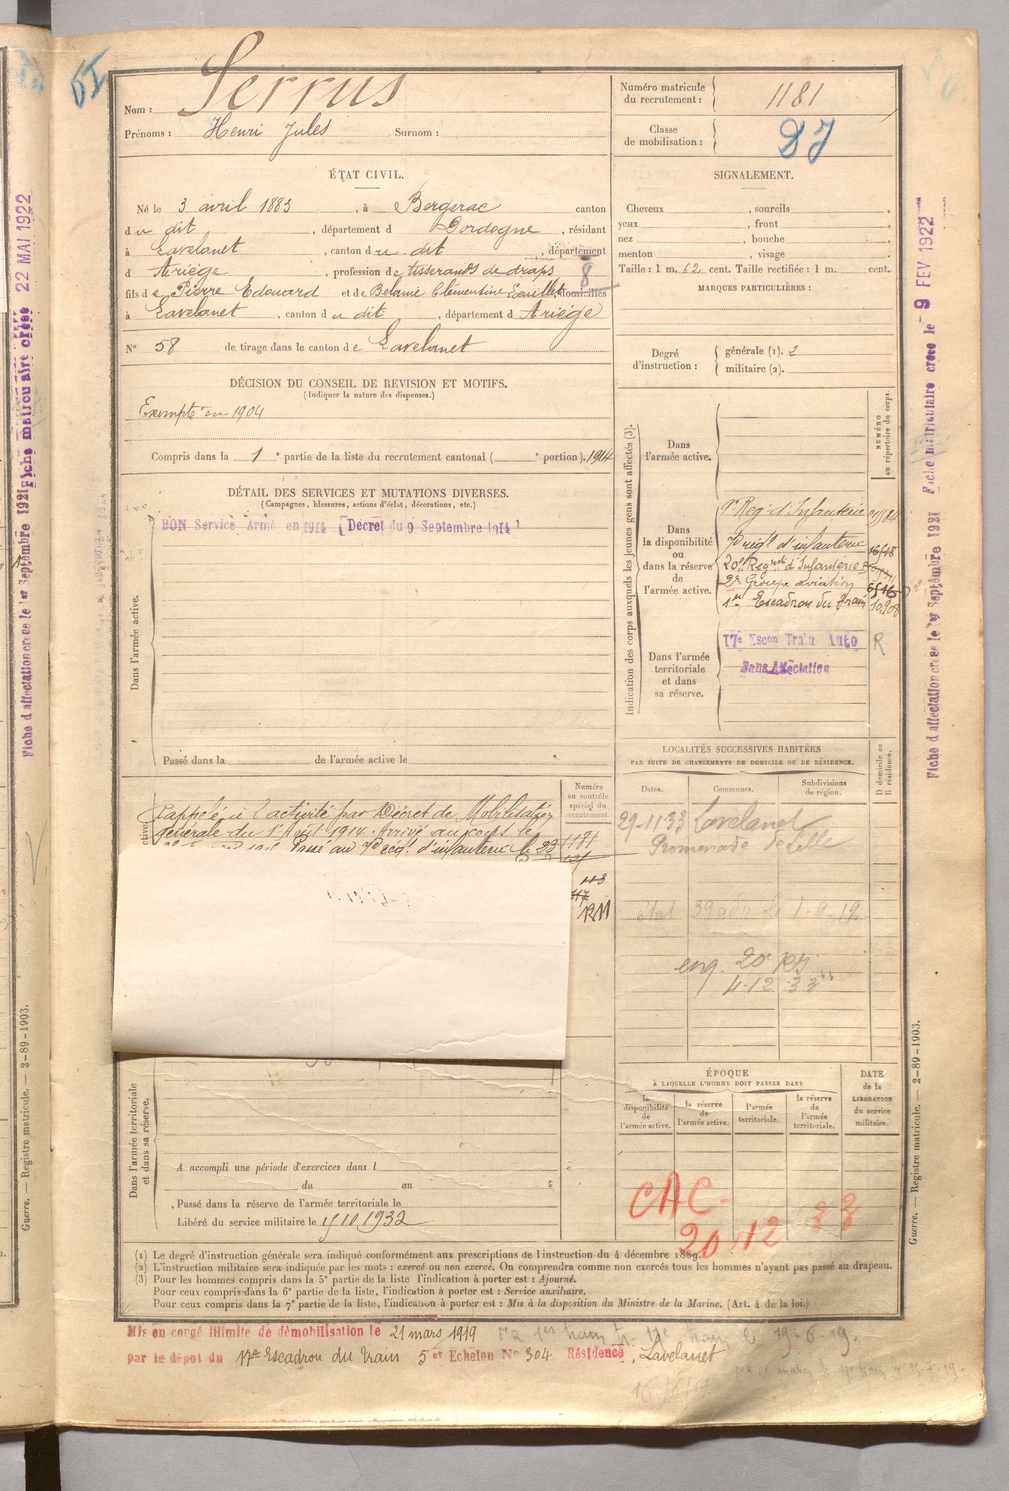 Serrus
Nom :
Prénoms : Henri Jules Surnom :
Numéro matricule du recrutement : 1181
Classe de mobilisation :
ÉTAT CIVIL.
Né le 3 avril 1883, à Bergerac canton
du dit, département d Dordogne, résidant
à Lavelanet, canton du dit, département
d Ariège, profession de tisserands de draps
fils de Pierre Edouard et de Belamie Clémentine domiciliés
à Lavelanet, canton du dit, département d Ariège
N° 58 de tirage dans le canton de Lavelanet
SIGNALEMENT.
Cheveux , sourcils ,
yeux , front ,
nez , bouche ,
menton , visage .
Taille : 1 m. 62 cent. Taille rectifiée : 1 m. cent.
MARQUES PARTICULIÈRES :
Degré d'instruction : générale (1). 2
militaire (2).
DÉCISION DU CONSEIL DE REVISION ET MOTIFS.
(Indiquer la nature des dispenses.)
Exempté en 1904
Compris dans la 1e partie de la liste du recrutement cantonal ( e portion). 1914
DÉTAIL DES SERVICES ET MUTATIONS DIVERSES.
(Campagnes, blessures, actions d'éclat, décorations, etc.)
BON Service Armé en 1914 (Décret du 9 Septembre 1914)
Dans l'armée active.
Passé dans la de l'armée active le
Indication des corps auxquels les jeunes gens sont affectés (3).
NUMÉRO au répertoire du corps.
Dans l'armée active.
Dans la disponibilité ou dans la réserve de l'armée active.
9e Reg. d'Infanterie
7e régt d'infanterie 16518
20e Regmt d'Infanterie
2e Groupe aviation
1er Escadron du Train
Dans l'armée territoriale et dans sa réserve.
17e Escon Train Auto R
Sans Affectation
LOCALITÉS SUCCESSIVES HABITÉES
PAR SUITE DE CHANGEMENTS DE DOMICILE OU DE RÉSIDENCE.
D domicile ou R résidence.
Dates. Communes. Subdivisions de région.
29-11-33 Lavelanet
Promenade
39
eng. 20
4-12-33
Numéro au contrôle spécial du recrutement.
1181
113
117
1211
Rappelé à l'activité par Décret de Mobilisation
générale du 1er Août 1914. Arrivé au corps le
Passé au 7e régt d'infanterie le 23
Dans l'armée territoriale et dans sa réserve.
A accompli une période d'exercices dans l
du au
Passé dans la réserve de l'armée territoriale le
Libéré du service militaire le 15 10 1932
ÉPOQUE
À LAQUELLE L'HOMME DOIT PASSER DANS
la disponibilité de l'armée active.
la réserve de l'armée active.
l'armée territoriale.
la réserve de l'armée territoriale.
DATE de la LIBÉRATION du service militaire.
CAC-
20 12 33
(1) Le degré d'instruction générale sera indiqué conformément aux prescriptions de l'instruction du 4 décembre 1889.
(2) L'instruction militaire sera indiquée par les mots : exercé ou non exercé. On comprendra comme non exercés tous les hommes n'ayant pas passé au drapeau.
(3) Pour les hommes compris dans la 5e partie de la liste l'indication à porter est : Ajourné.
Pour ceux compris dans la 6e partie de la liste, l'indication à porter est : Service auxiliaire.
Pour ceux compris dans la 7e partie de la liste, l'indication à porter est : Mis à la disposition du Ministre de la Marine. (Art. 4 de la loi.)
Mis en congé illimité de démobilisation le 21 mars 1919
par le dépôt du 17e Escadron du train 5e Echelon N° 304 Résidence Lavelanet
Fiche d'affectation créée le 1er Septembre 1921 Fiche matriculaire créée 22 MAI 1922
Fiche d'affectation créée le 1er Septembre 1921 Fiche matriculaire créée le 9 FEV 1922
Guerre. — Registre matricule. — 2-89-1903.
Guerre. — Registre matricule. — 2-89-1903.